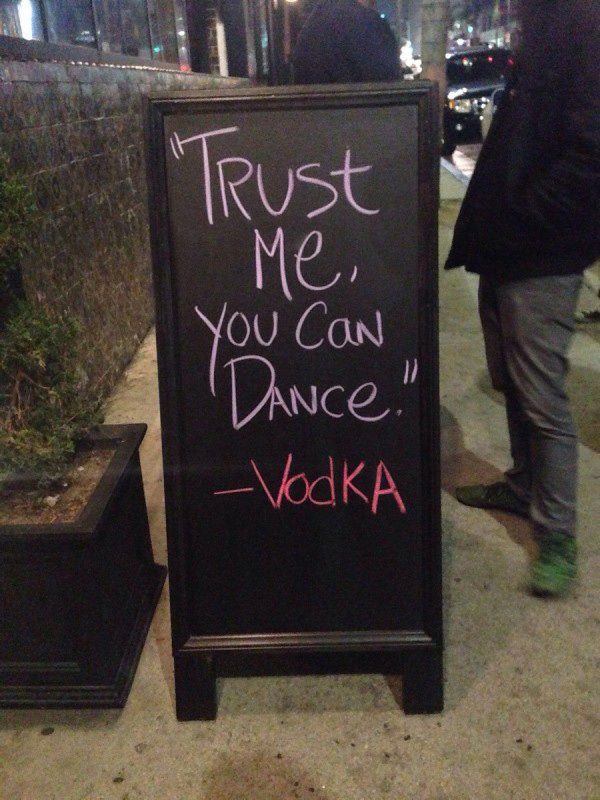 "TRUSt
Me,
YOU CaN
DANCe."
-VodKA